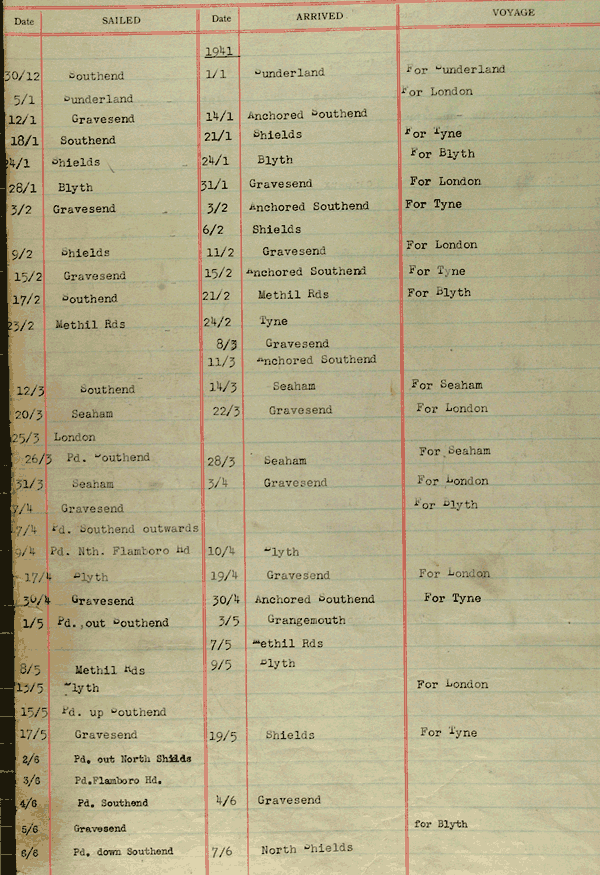 Date SAILED Date ARRIVED VOYAGE
1941
30/12 Southend 1/1 Sunderland For Sunderland
5/1 Sunderland For London
12/1 Gravesend 14/1 Anchored Southend
18/1 Southend 21/1 Shields For Tyne
24/1 Shields 24/1 Blyth For Blyth
28/1 Blyth 31/1 Gravesend For London
3/2 Gravesend 3/2 Anchored Southend For Tyne
6/2 Shields
9/2 Shields 11/2 Gravesend For London
15/2 Gravesend 15/2 Anchored Southend For Tyne
17/2 Southend 21/2 Methil Rds For Blyth
23/2 Methil Rds 24/2 Tyne
8/3 Gravesend
11/3 Anchored Southend
12/3 Southend 14/3 Seaham For Seaham
20/3 Seaham 22/3 Gravesend For London
25/3 London
26/3 Pd. Southend 28/3 Seaham For Seaham
31/3 Seaham 3/4 Gravesend For London
7/4 Gravesend For Blyth
7/4 Pd. Southend outwards
9/4 Pd. Nth. Flamboro Hd 10/4 Blyth
17/4 Blyth 19/4 Gravesend For London
30/4 Gravesend 30/4 Anchored Southend For Tyne
1/5 Pd. out Southend 3/5 Grangemouth
7/5 Methil Rds
8/5 Methil Rds 9/5 Blyth
13/5 Blyth For London
15/5 Pd. up Southend
17/5 Gravesend 19/5 Shields For Tyne
2/6 Pd. out North Shilds
3/6 Pd.Flamboro Hd.
4/6 Pd. Southend 4/6 Gravesend
5/6 Gravesend for Blyth
6/6 Pd. down Southend 7/6 North Shields